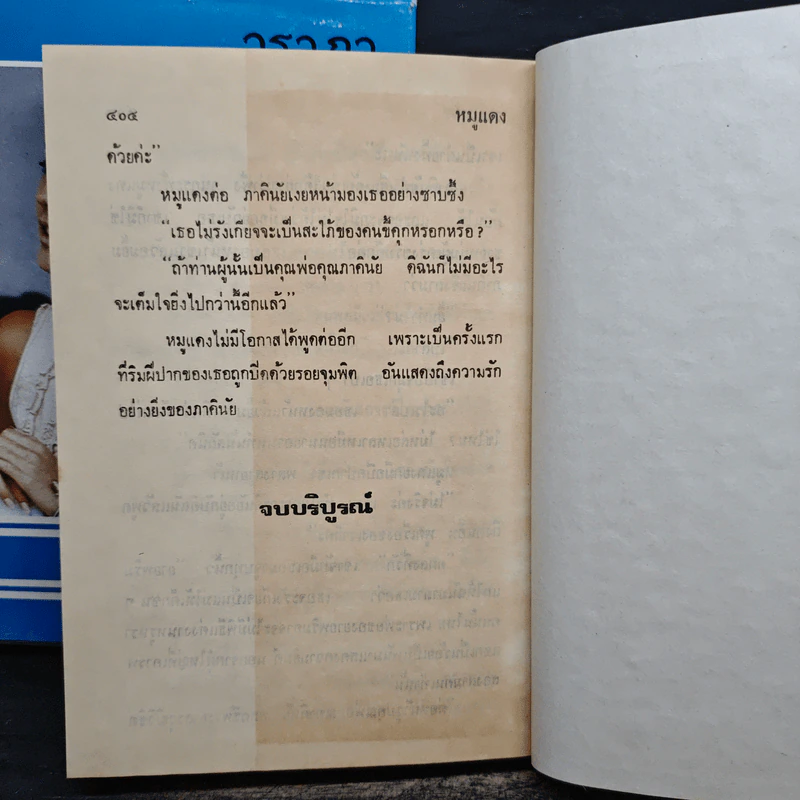 วราภา
๔๐๕ หมูแดง
ด้วยค่ะ”
หมูแดงต่อ ภาคินัยเงยหน้ามองเธออย่างซาบซึ้ง
“เธอไม่รังเกียจจะเป็นสะใภ้ของคนขี้คุกหรอกหรือ?”
“ถ้าท่านผู้นั้นเป็นคุณพ่อคุณภาคินัย ดิฉันก็ไม่มีอะไร
จะเต็มใจยิ่งไปกว่านี้อีกแล้ว”
หมูแดงไม่มีโอกาสได้พูดต่ออีก เพราะเป็นครั้งแรก
ที่ริมฝีปากของเธอถูกปิดด้วยรอยจุมพิต อันแสดงถึงความรัก
อย่างยิ่งของภาคินัย
จบบริบูรณ์